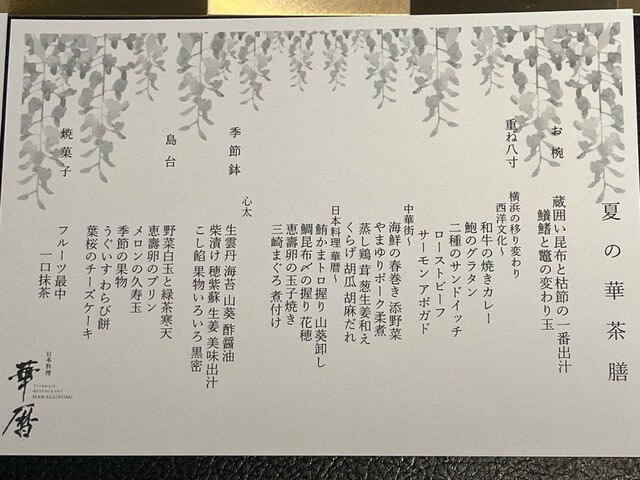 夏の華茶膳
お椀
蔵囲い昆布と枯節の一番出汁
鱶鰭と鼈の変わり玉
重ね八寸
横浜の移り変わり
西洋文化～
和牛の焼きカレー
鮑のグラタン
二種のサンドイッチ
ローストビーフ
サーモン アボガド
中華街～
海鮮の春巻き 添野菜
やまゆりポーク柔煮
蒸し鶏 茸 葱生姜和え
くらげ 胡瓜 胡麻だれ
日本料理 華暦～
鮪かまトロ握り 山葵卸し
鯛昆布〆の握り 花穂
恵壽卵の玉子焼き
三崎まぐろ 煮付け
季節鉢
心太
生雲丹 海苔 山葵 酢醤油
柴漬け 穂紫蘇 生姜 美味出汁
こし餡 果物いろいろ 黒密
島台
野菜白玉と緑茶寒天
恵壽卵のプリン
メロンの久寿玉
季節の果物
うぐいす わらび餅
葉桜のチーズケーキ
焼菓子
フルーツ最中
一口抹茶
日本料理
華暦
JAPANESE
RESTAURANT
HANAGOYOMI